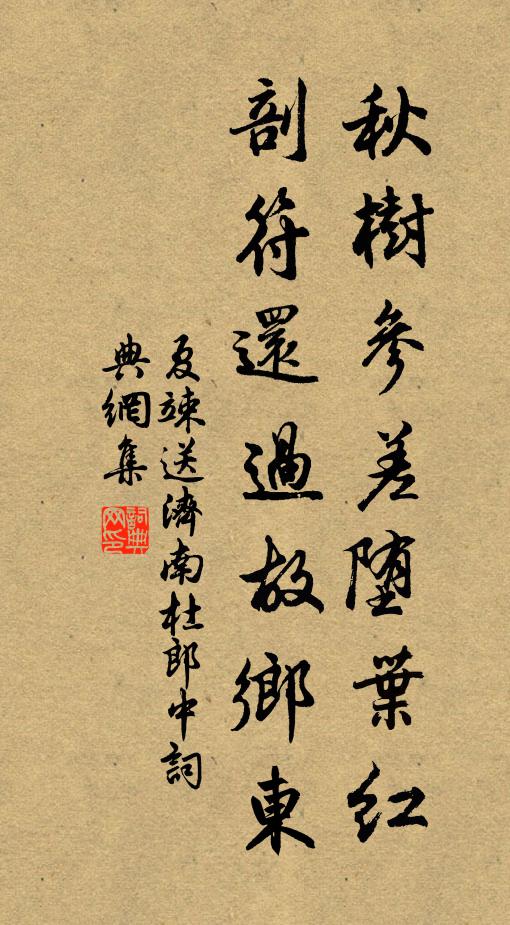 秋樹參差堕葉紅
剖符還過故鄉東
夏竦送濟南杜郎中詞
典網集
詞典網印